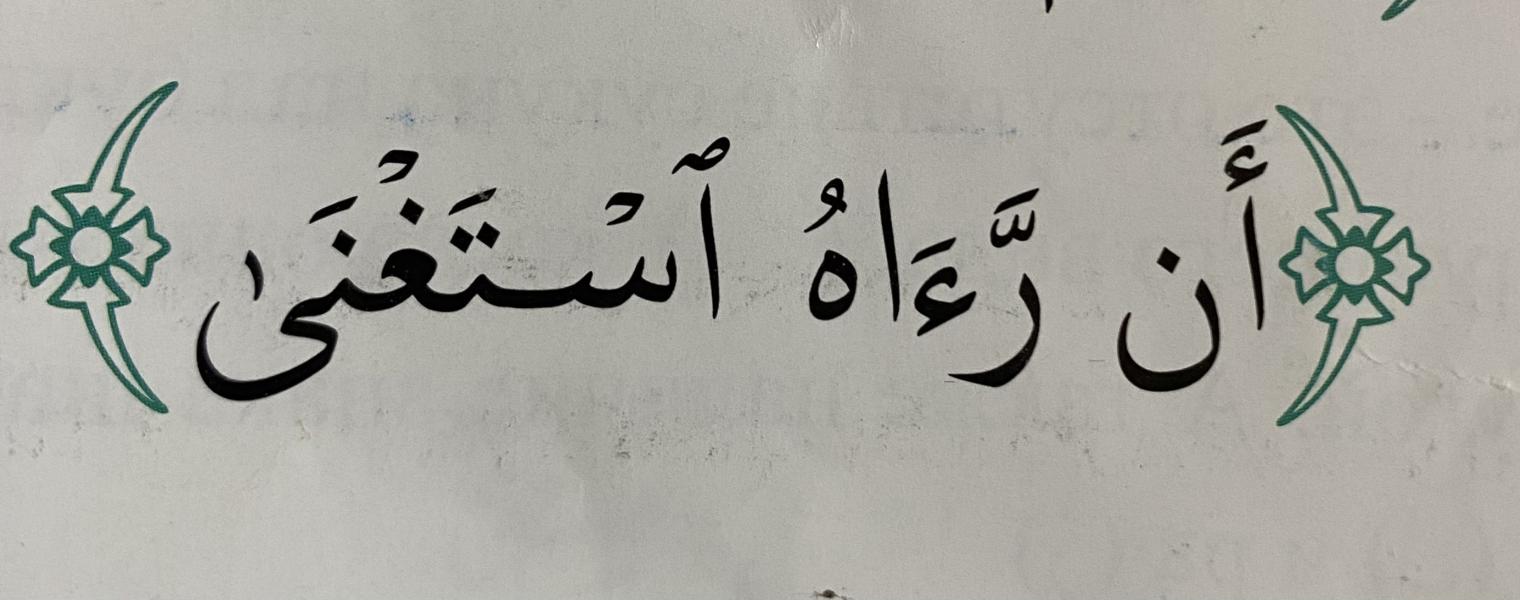 أَن رَّءَاهُ ٱسْتَغْنَىٰ